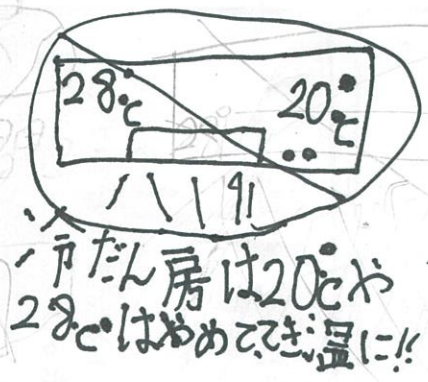 28℃ 20℃
冷だん房は20℃や
28℃はやめててき温に!!